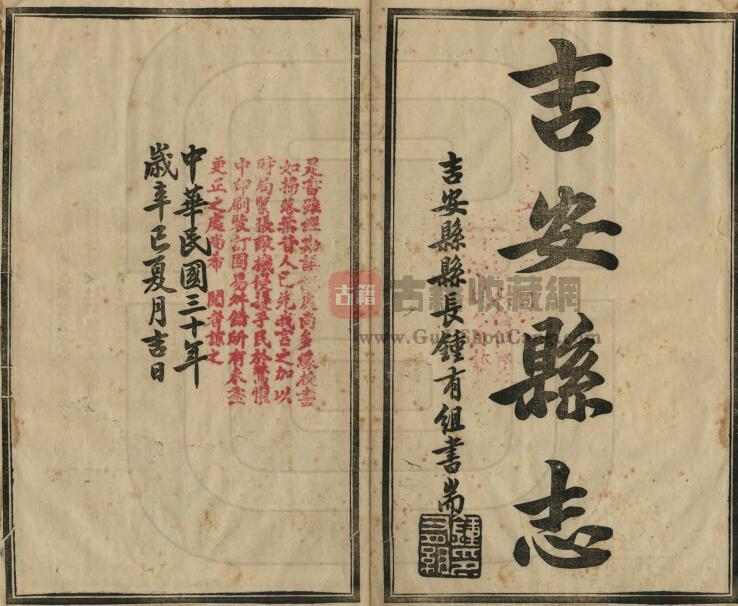 吉安縣志
吉安縣縣長鍾有組書耑
是書雖經勘誤 處尚多緣校書
如掃落葉昔人已先我言之加以
時局緊張敵機侵擾手民於驚懼
中印刷裝訂固易舛錯所有未盡
更正之處尚希 閱者諒之
中華民國三十年
歲辛巳夏月吉日
古籍
古籍收藏網